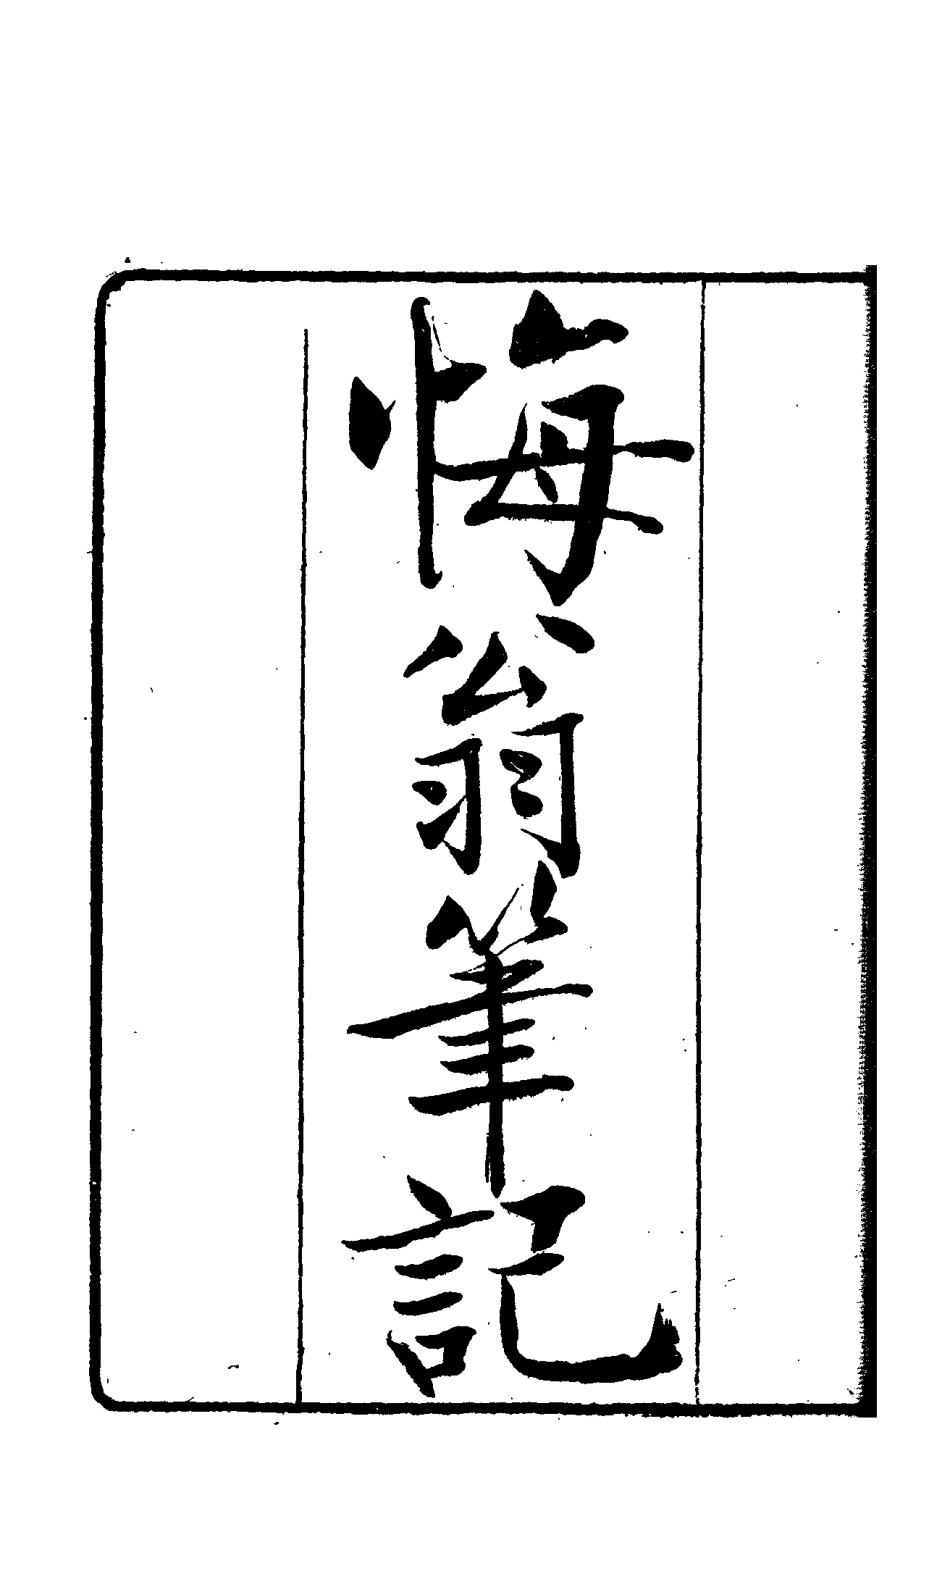 悔翁筆記